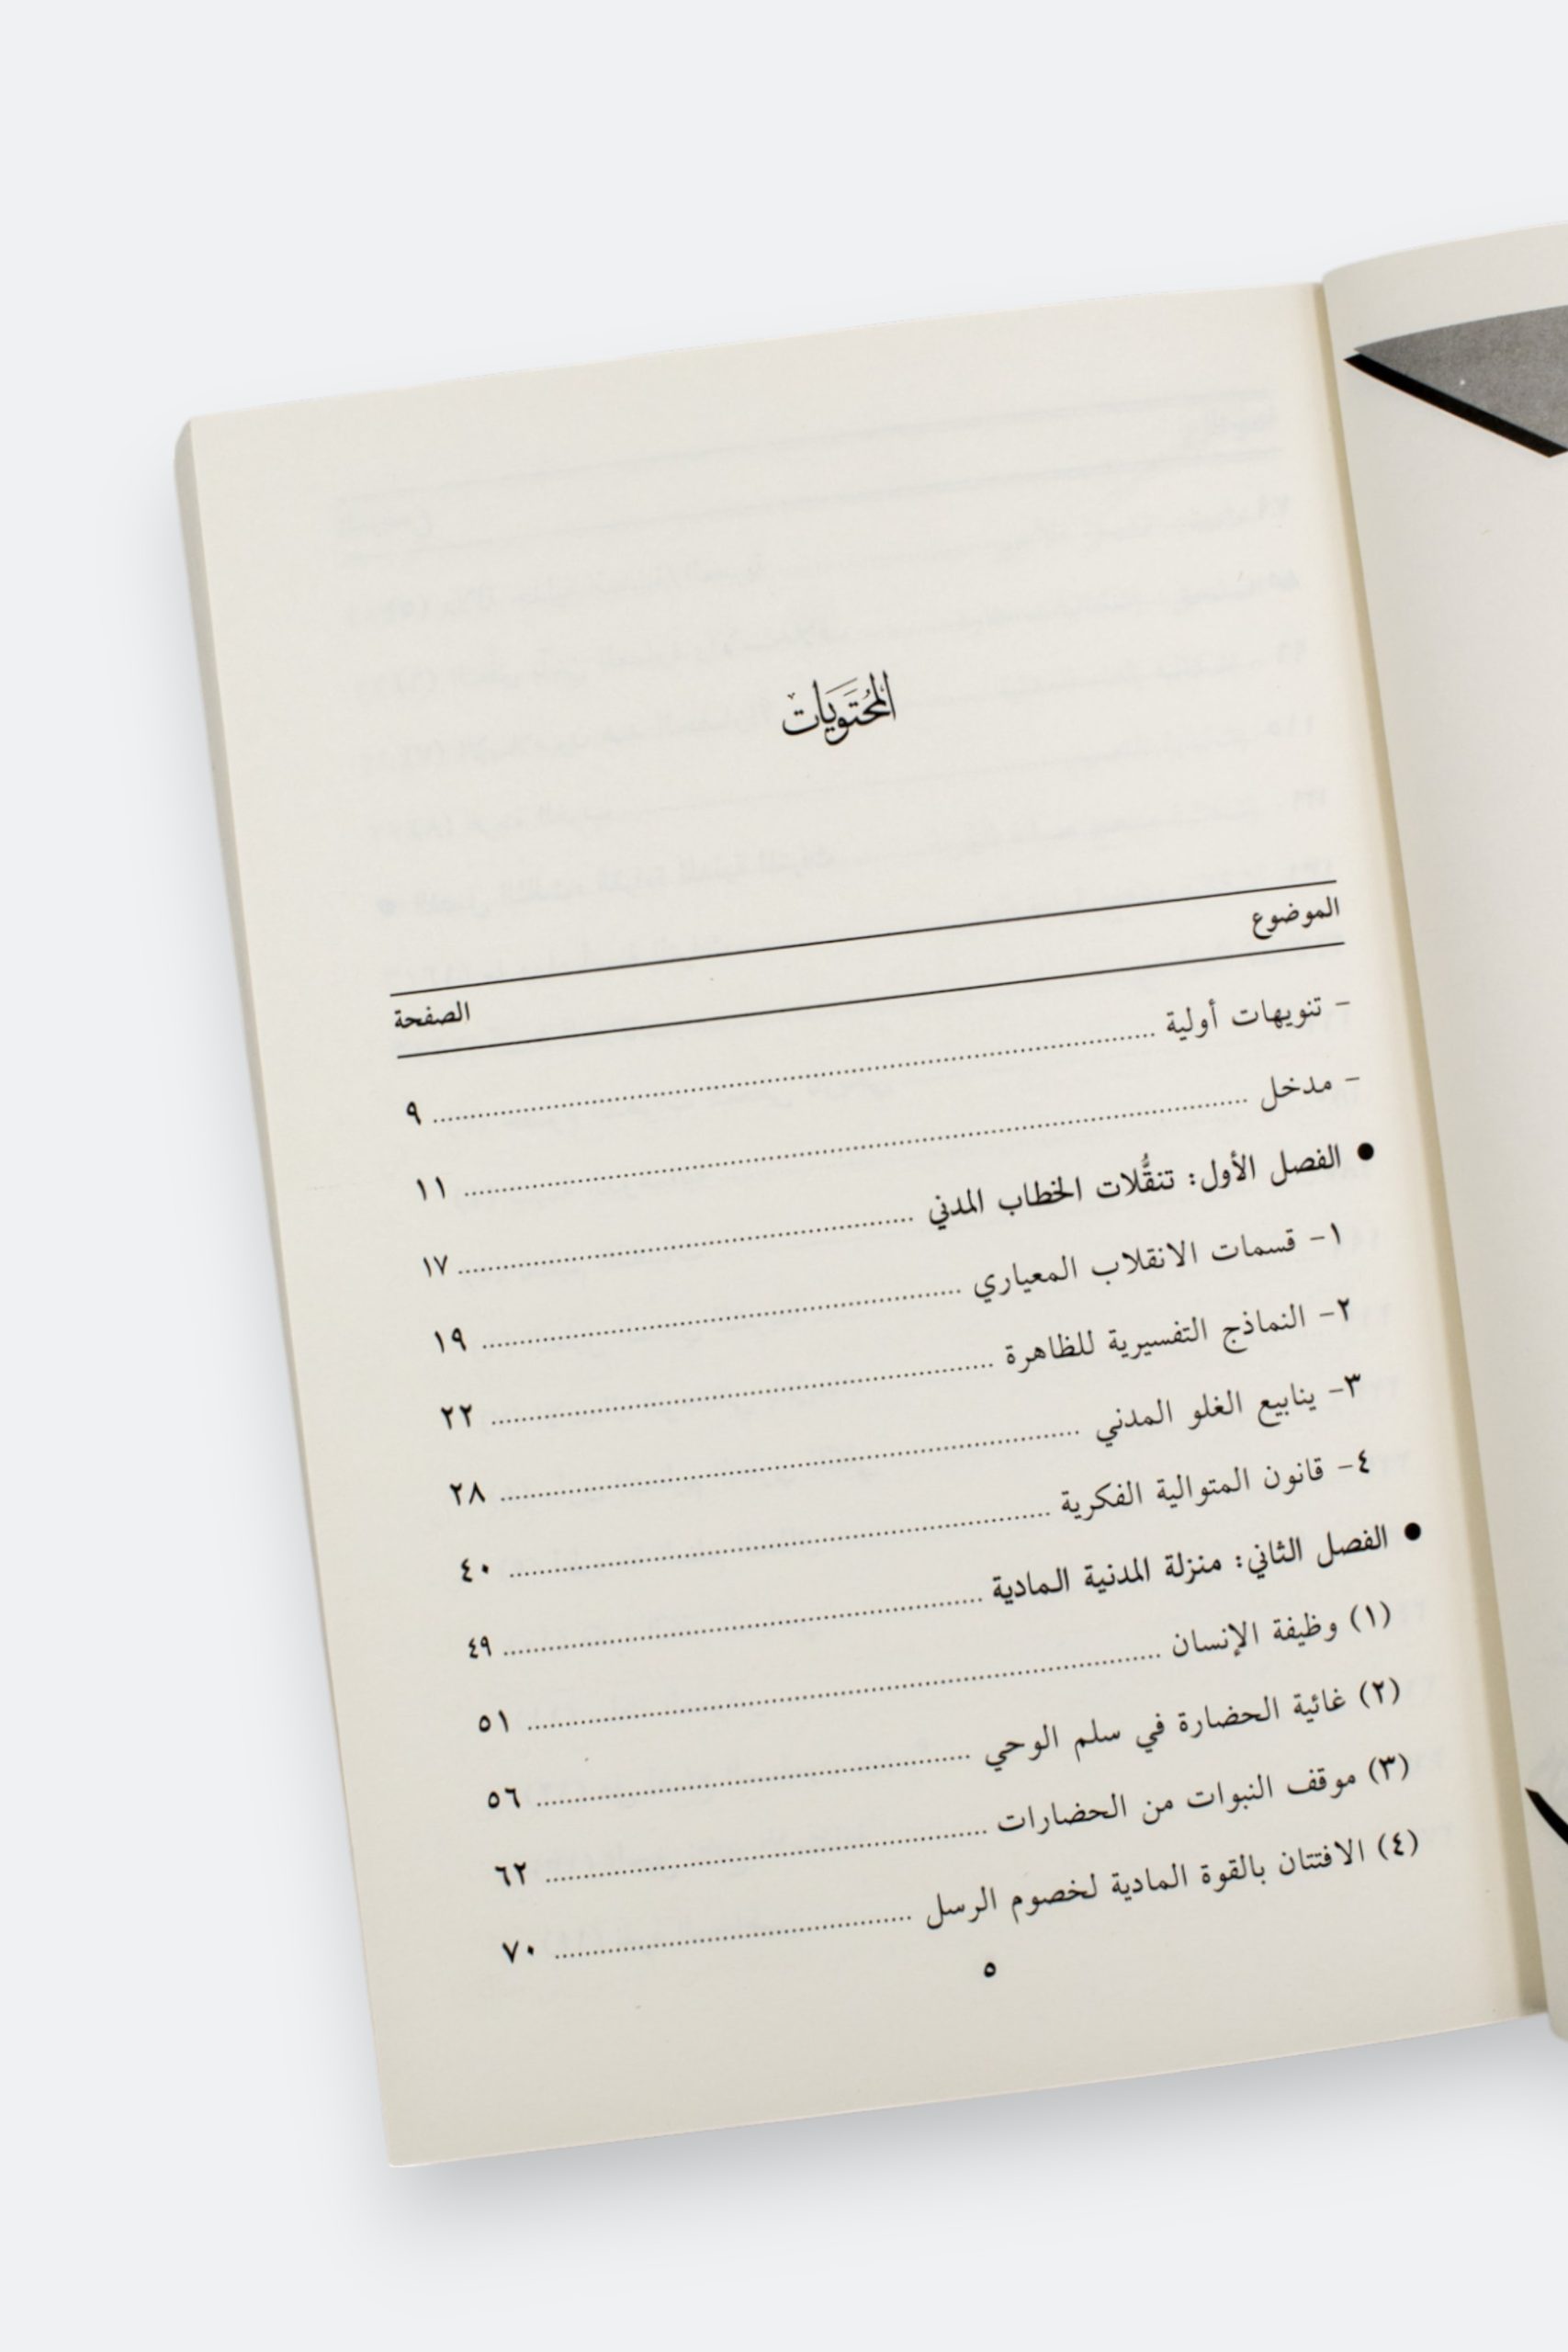 المُحتَوَيات
الموضوع الصفحة
- تنويهات أولية ........ ٩
- مدخل ........ ١١
● الفصل الأول: تنقُّلات الخطاب المدني ........ ١٧
١- قسمات الانقلاب المعياري ........ ١٩
٢- النماذج التفسيرية للظاهرة ........ ٢٢
٣- ينابيع الغلو المدني ........ ٢٨
٤- قانون المتوالية الفكرية ........ ٤٠
● الفصل الثاني: منزلة المدنية المادية ........ ٤٩
(١) وظيفة الإنسان ........ ٥١
(٢) غائية الحضارة في سلم الوحي ........ ٥٦
(٣) موقف النبوات من الحضارات ........ ٦٢
(٤) الافتتان بالقوة المادية لخصوم الرسل ........ ٧٠
٥